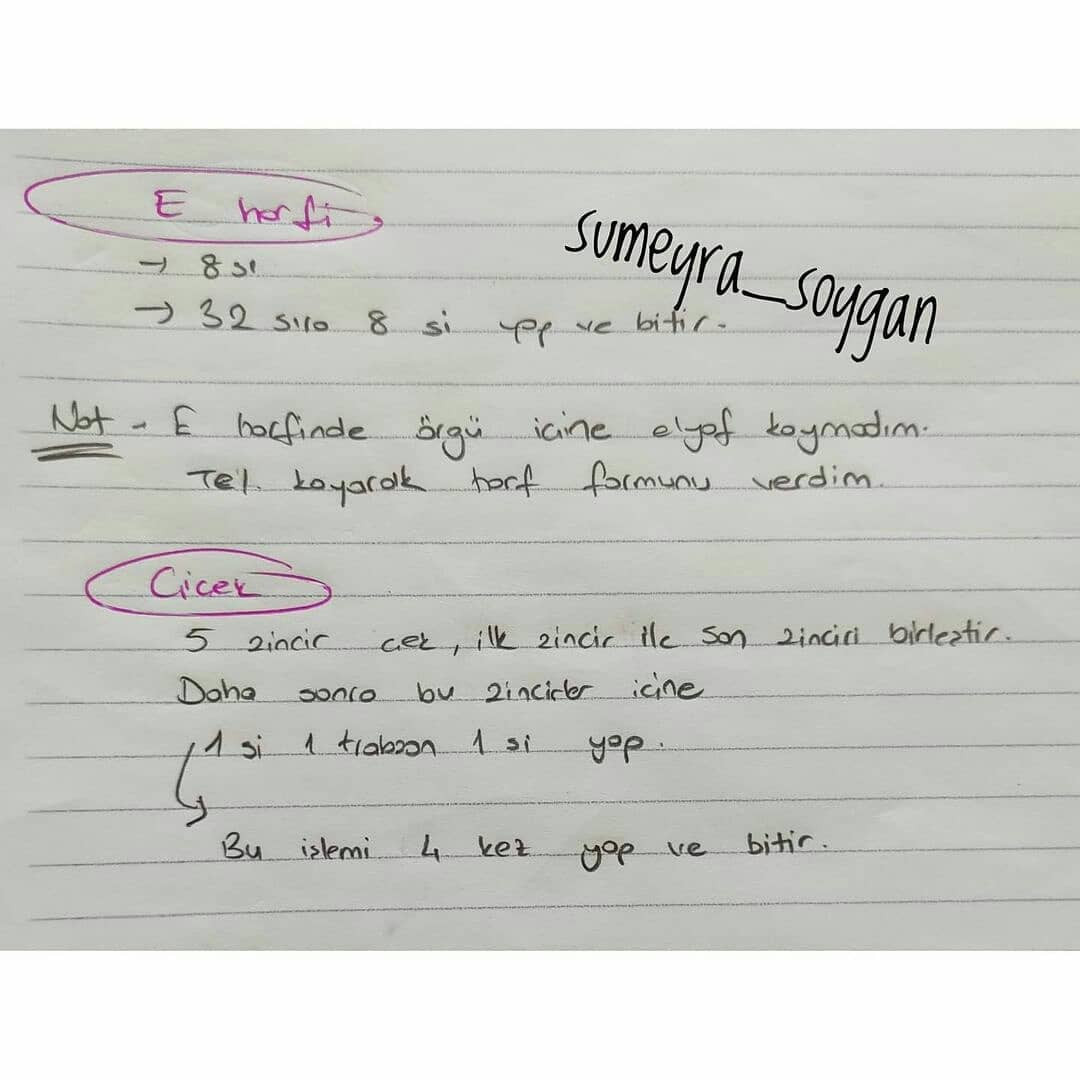 E harfi
→ 8 si
→ 32 sıra 8 si yap ve bitir.
sumeyra_soygan
Not - E harfinde örgü icine elyaf koymadım.
Tel koyarak harf formunu verdim.
Cicek
5 zincir cek, ilk zincir ile son zinciri birleştir.
Daha sonra bu zincirler icine
1 si 1 trabzan 1 si yap.
Bu işlemi 4 kez yap ve bitir.